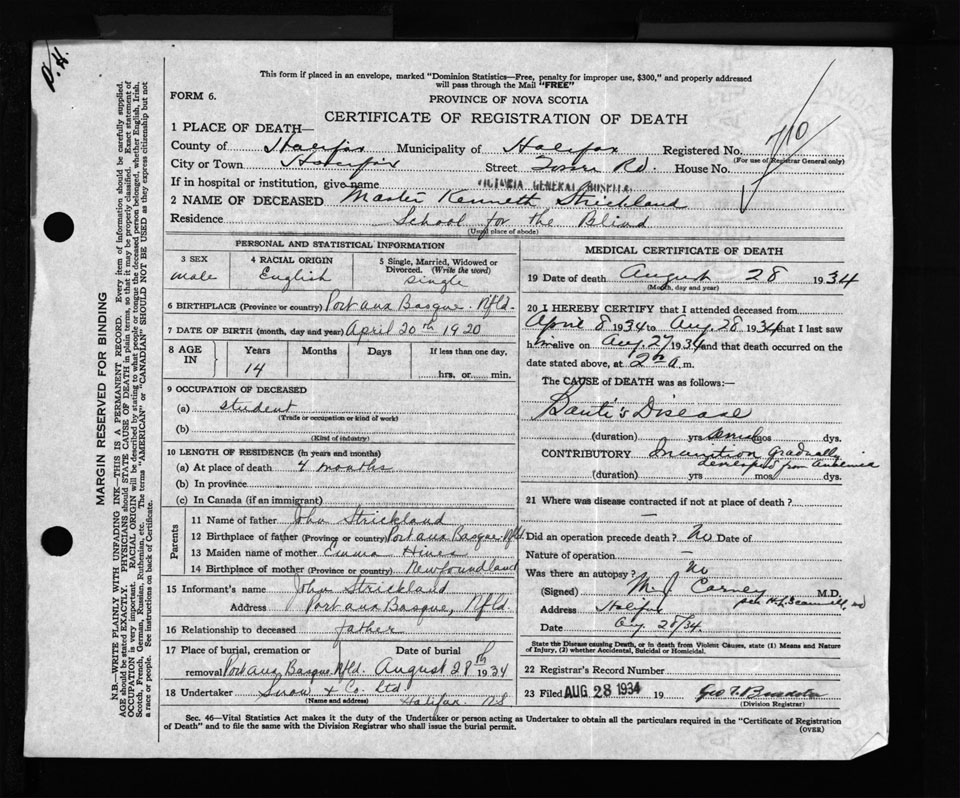 P.H.
This form if placed in an envelope, marked "Dominion Statistics—Free, penalty for improper use, $300," and properly addressed
will pass through the Mail "FREE"
FORM 6.
PROVINCE OF NOVA SCOTIA
CERTIFICATE OF REGISTRATION OF DEATH
1 PLACE OF DEATH—
County of Halifax Municipality of Halifax Registered No. 710
(For use of Registrar General only)
City or Town Halifax Street Tower Rd. House No.
If in hospital or institution, give name VICTORIA GENERAL HOSPITAL
2 NAME OF DECEASED Master Kenneth Strickland
Residence School for the Blind
(Usual place of abode)
PERSONAL AND STATISTICAL INFORMATION
3 SEX 4 RACIAL ORIGIN 5 Single, Married, Widowed or
Divorced. (Write the word)
male English Single
6 BIRTHPLACE (Province or country) Port aux Basque. Nfld.
7 DATE OF BIRTH (month, day and year) April 20th 1920
8 AGE IN Years Months Days If less than one day,
14 hrs. or min.
9 OCCUPATION OF DECEASED
(a) Student
(Trade or occupation or kind of work)
(b)
(Kind of industry)
10 LENGTH OF RESIDENCE (In years and months)
(a) At place of death 4 months
(b) In province
(c) In Canada (if an immigrant)
Parents
11 Name of father John Strickland
12 Birthplace of father (Province or country) Port aux Basque. Nfld
13 Maiden name of mother Emma Hines
14 Birthplace of mother (Province or country) Newfoundland
15 Informant's name John Strickland
Address Port aux Basque, Nfld.
16 Relationship to deceased father
17 Place of burial, cremation or Date of burial
removal Port aux Basque. Nfld. August 28th 1934
18 Undertaker Snow & Co. Ltd
(Name and address) Halifax N.S
MEDICAL CERTIFICATE OF DEATH
19 Date of death August 28 1934
(Month, day and year)
20 I HEREBY CERTIFY that I attended deceased from
April 8 1934 to Aug 28 1934 that I last saw
him alive on Aug. 27 1934 and that death occurred on the
date stated above, at 2 a. m.
The CAUSE of DEATH was as follows:—
Banti's Disease
(duration) yrs mos dys.
CONTRIBUTORY Inanition gradually
developed from
(duration) yrs mos dys.
21 Where was disease contracted if not at place of death?
—
Did an operation precede death? No Date of
Nature of operation —
Was there an autopsy? No
(Signed) M. J. Carney M.D.
Address Halifax
Date Aug 28/34.
State the Disease causing Death, or in death from Violent Causes, state (1) Means and Nature
of Injury, (2) whether Accidental, Suicidal or Homicidal.
22 Registrar's Record Number
23 Filed AUG 28 1934 19
(Division Registrar)
Sec. 46—Vital Statistics Act makes it the duty of the Undertaker or person acting as Undertaker to obtain all the particulars required in the "Certificate of Registration
of Death" and to file the same with the Division Registrar who shall issue the burial permit.
(OVER)
MARGIN RESERVED FOR BINDING
N.B.—WRITE PLAINLY WITH UNFADING INK—THIS IS A PERMANENT RECORD. Every item of information should be carefully supplied.
AGE should be stated EXACTLY. PHYSICIANS should STATE CAUSE OF DEATH in plain terms, so that it may be properly classified. Exact statement of
OCCUPATION is very important. RACIAL ORIGIN will be described by stating to what people or tongue the deceased person belonged, whether English, Irish,
Scotch, French, German, Russian, Ruthenian, etc. The terms "AMERICAN" or "CANADIAN" SHOULD NOT BE USED as they express citizenship but not
a race or people. See instructions on back of Certificate.